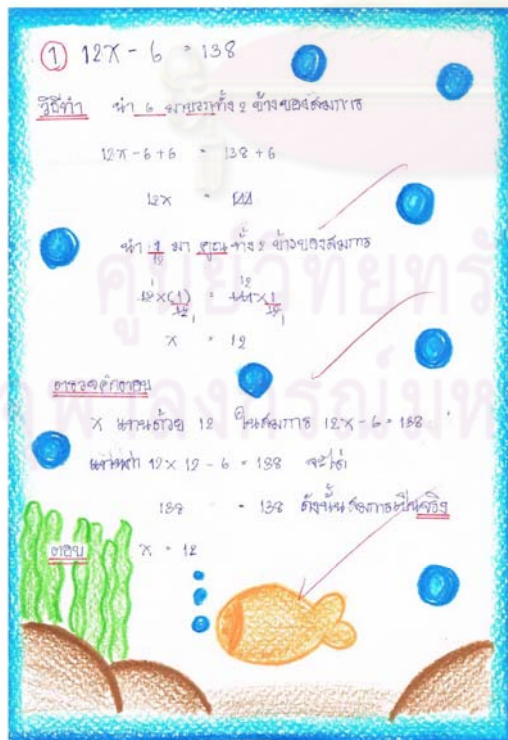 ① 12x - 6 = 138
วิธีทำ นำ 6 มาบวกทั้ง 2 ข้างของสมการ
12x - 6 + 6 = 138 + 6
12x = 144
นำ 1/12 มา คูณ ทั้ง 2 ข้างของสมการ
12x(1/12) = 144 x 1/12
x = 12
ตรวจคำตอบ
x แทนด้วย 12 ในสมการ 12x - 6 = 138
12 x 12 - 6 = 138 จะได้
138 = 138 ดังนั้นสมการเป็นจริง
ตอบ x = 12
ศูนย์วิทยทรั
จุฬาลงกรณ์มห